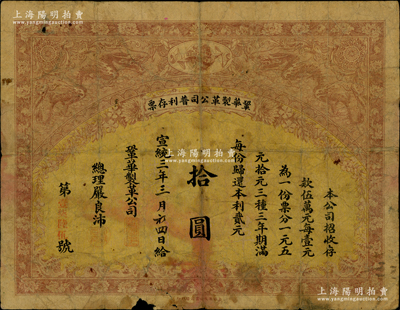 上海陽明拍賣
www.yangmingauction.com
票存利普司公革製華鞏
本公司招收存
款伍萬元每壹元
為一份票分一元五
元拾元三種三年期滿
每份歸還本利貳元
拾圓
宣統三年三月初四日給
鞏華製革公司
總理嚴良沛
第 號
上海陽明拍賣
www.yangmingauction.com